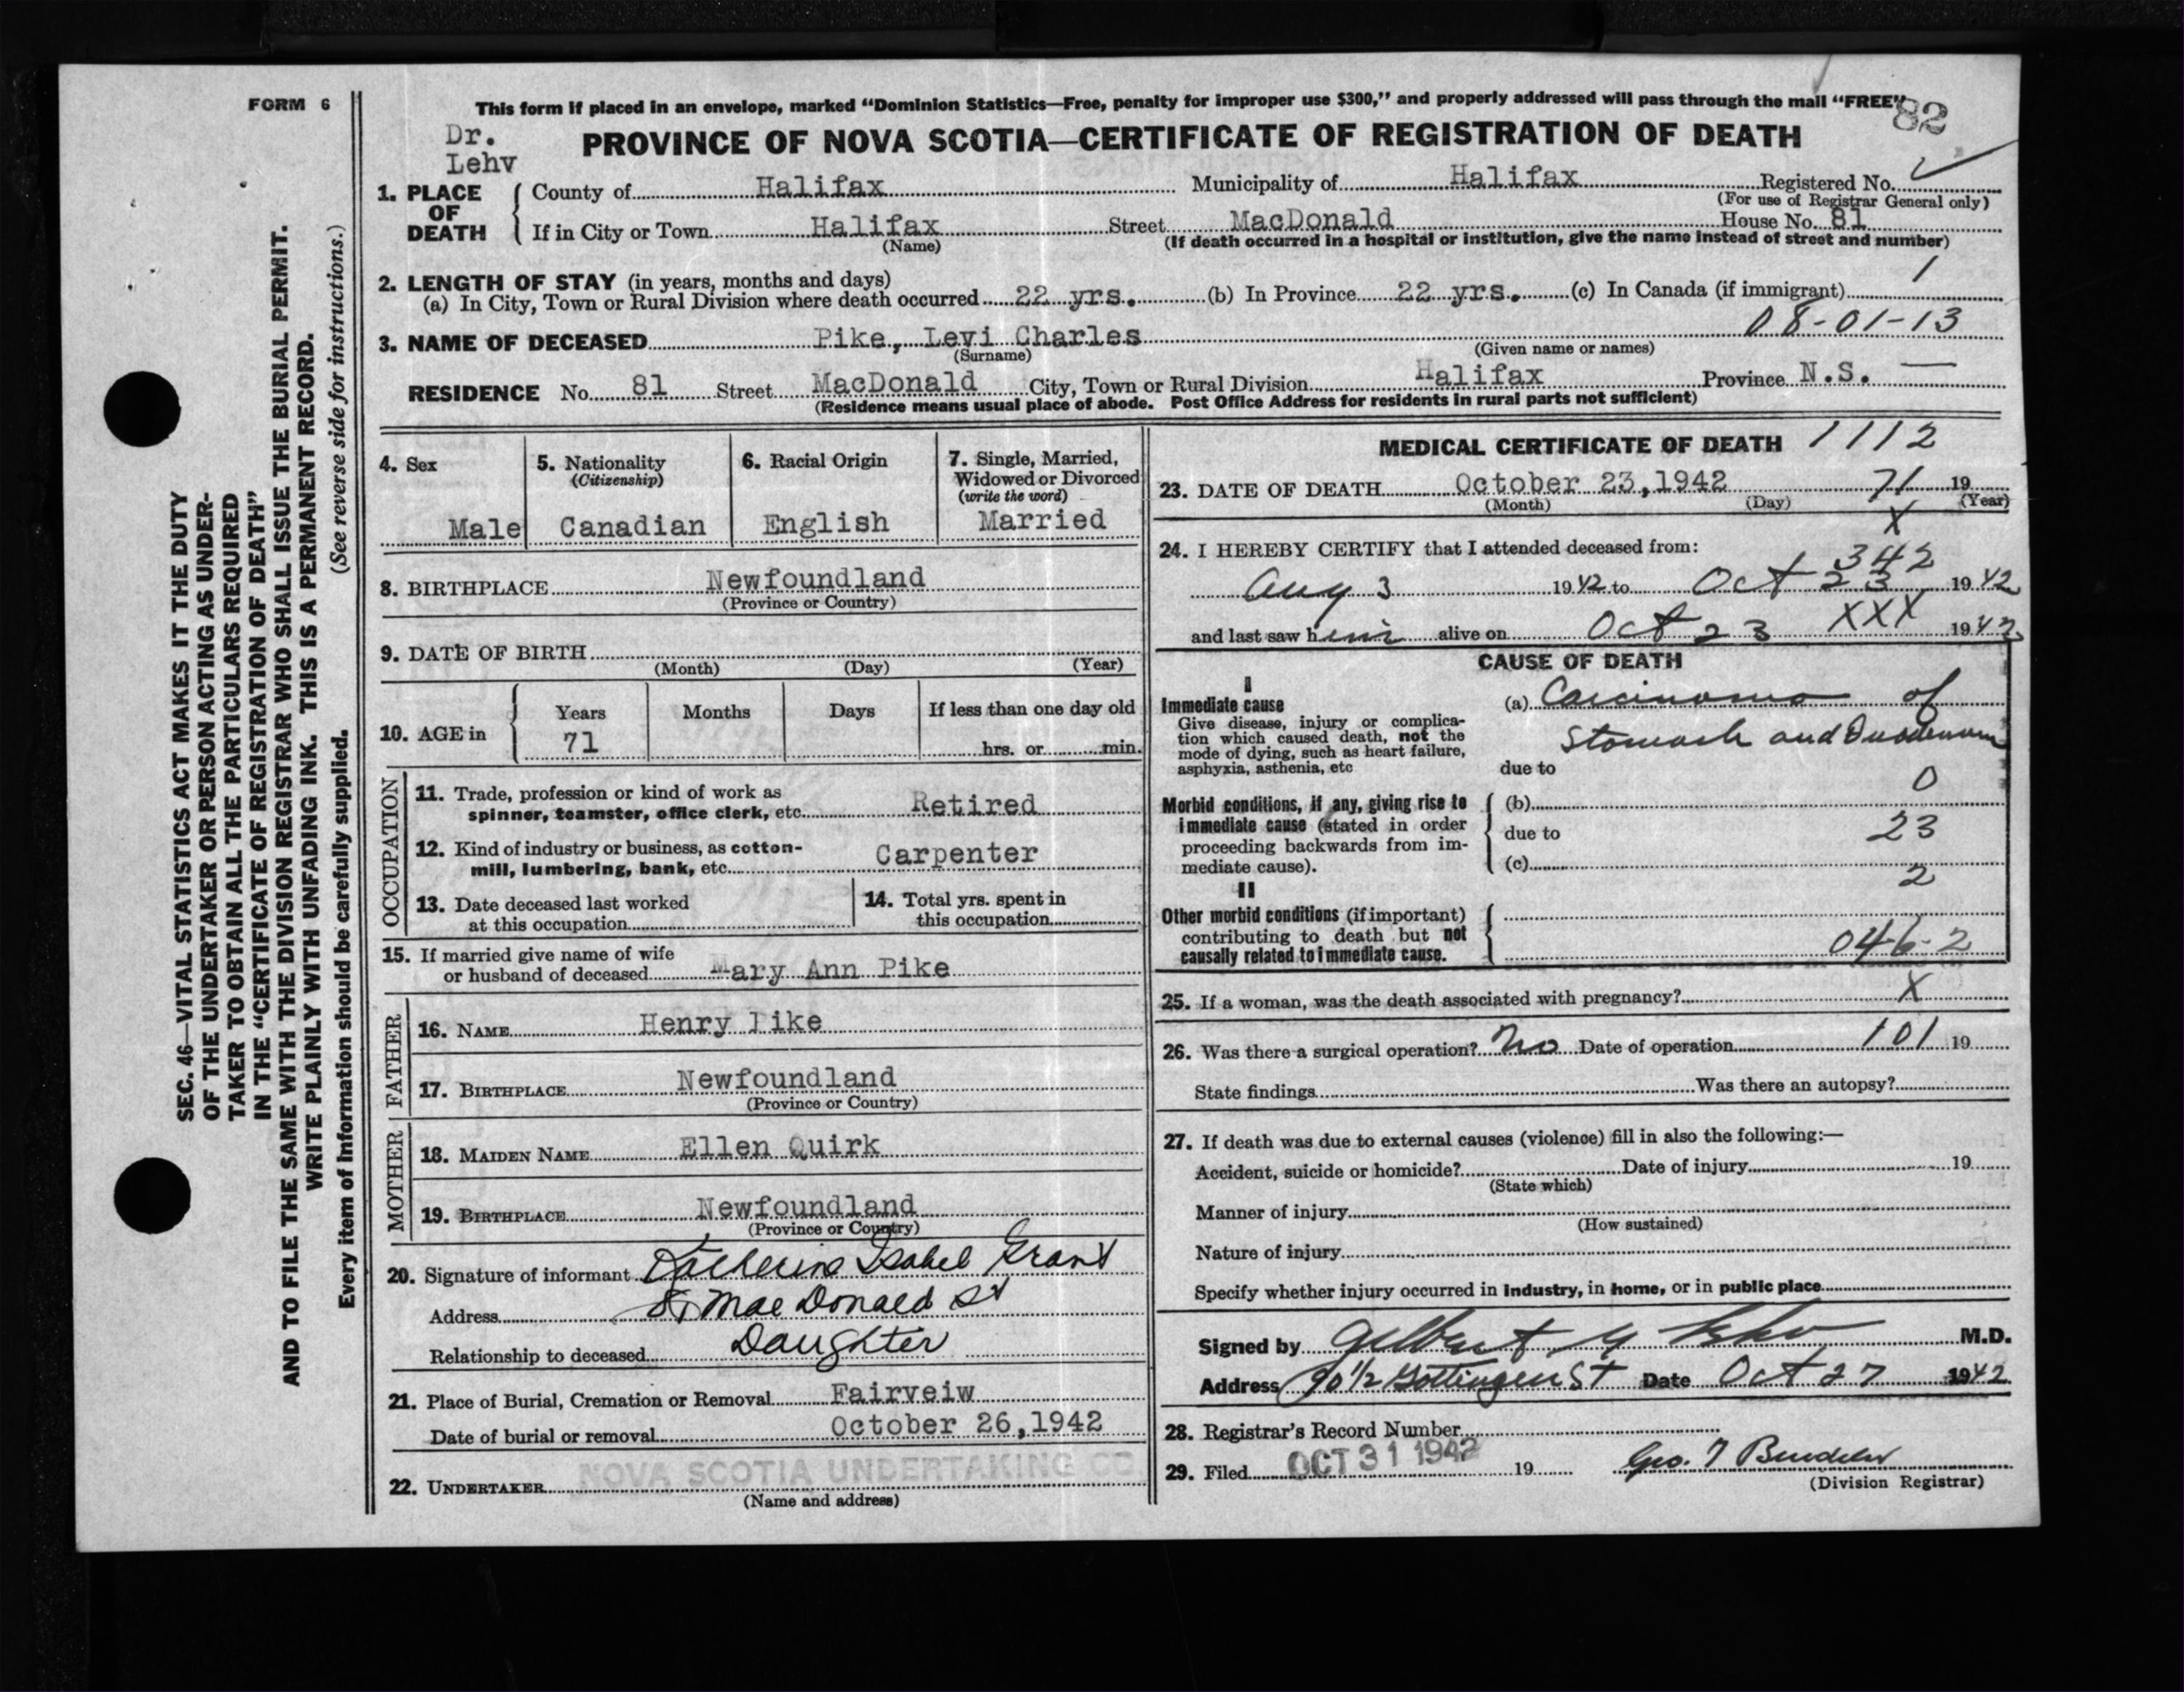 FORM 6
This form if placed in an envelope, marked "Dominion Statistics—Free, penalty for improper use $300," and properly addressed will pass through the mail "FREE"
82
Dr.
Lehv
PROVINCE OF NOVA SCOTIA—CERTIFICATE OF REGISTRATION OF DEATH
1. PLACE OF DEATH
County of Halifax Municipality of Halifax Registered No.
(For use of Registrar General only)
If in City or Town Halifax Street MacDonald House No. 81
(Name) (If death occurred in a hospital or institution, give the name instead of street and number)
2. LENGTH OF STAY (in years, months and days) 1
(a) In City, Town or Rural Division where death occurred 22 yrs. (b) In Province 22 yrs. (c) In Canada (if immigrant)
08-01-13
3. NAME OF DECEASED Pike, Levi Charles
(Surname) (Given name or names)
RESIDENCE No. 81 Street MacDonald City, Town or Rural Division Halifax Province N.S. —
(Residence means usual place of abode. Post Office Address for residents in rural parts not sufficient)
4. Sex
Male
5. Nationality
(Citizenship)
Canadian
6. Racial Origin
English
7. Single, Married,
Widowed or Divorced
(write the word)
Married
8. BIRTHPLACE Newfoundland
(Province or Country)
9. DATE OF BIRTH
(Month) (Day) (Year)
10. AGE in
Years Months Days If less than one day old
71 hrs. or min.
OCCUPATION
11. Trade, profession or kind of work as
spinner, teamster, office clerk, etc. Retired
12. Kind of industry or business, as cotton-
mill, lumbering, bank, etc. Carpenter
13. Date deceased last worked
at this occupation
14. Total yrs. spent in
this occupation
15. If married give name of wife
or husband of deceased Mary Ann Pike
FATHER
16. NAME Henry Pike
17. BIRTHPLACE Newfoundland
(Province or Country)
MOTHER
18. MAIDEN NAME Ellen Quirk
19. BIRTHPLACE Newfoundland
(Province or Country)
20. Signature of informant Katherine Isabel Grant
Address 81 MacDonald St
Relationship to deceased Daughter
21. Place of Burial, Cremation or Removal Fairveiw
Date of burial or removal October 26,1942
22. UNDERTAKER NOVA SCOTIA UNDERTAKING CO
(Name and address)
MEDICAL CERTIFICATE OF DEATH 1112
23. DATE OF DEATH October 23,1942 71 19
(Month) (Day) (Year)
X
24. I HEREBY CERTIFY that I attended deceased from:
342
Aug 3 1942 to Oct 23 1942
and last saw him alive on Oct 23 XXX 1942
CAUSE OF DEATH
I
Immediate cause
Give disease, injury or complica-
tion which caused death, not the
mode of dying, such as heart failure,
asphyxia, asthenia, etc
(a) Carcinoma of
Stomach and Duodenum
due to
0
Morbid conditions, if any, giving rise to
immediate cause (stated in order
proceeding backwards from im-
mediate cause).
(b)
due to 23
(c)
2
II
Other morbid conditions (if important)
contributing to death but not
causally related to immediate cause.
046-2
25. If a woman, was the death associated with pregnancy? X
26. Was there a surgical operation? No Date of operation 101 19
State findings Was there an autopsy?
27. If death was due to external causes (violence) fill in also the following:—
Accident, suicide or homicide? Date of injury 19
(State which)
Manner of injury
(How sustained)
Nature of injury
Specify whether injury occurred in industry, in home, or in public place
Signed by Gilbert M.D.
Address 90 1/2 Gottingen St Date Oct 27 1942
28. Registrar's Record Number
29. Filed OCT 31 1942 19 Geo. T
(Division Registrar)
SEC. 46—VITAL STATISTICS ACT MAKES IT THE DUTY
OF THE UNDERTAKER OR PERSON ACTING AS UNDER-
TAKER TO OBTAIN ALL THE PARTICULARS REQUIRED
IN THE "CERTIFICATE OF REGISTRATION OF DEATH"
AND TO FILE THE SAME WITH THE DIVISION REGISTRAR WHO SHALL ISSUE THE BURIAL PERMIT.
WRITE PLAINLY WITH UNFADING INK. THIS IS A PERMANENT RECORD.
(See reverse side for instructions.)
Every item of information should be carefully supplied.